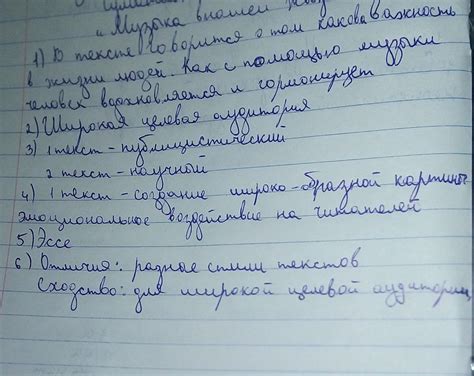 „Музыка в нашей
1) В тексте говорится о том какова важность
в жизни людей. Как с помощью музыки
человек вдохновляется и гормонирует
2) Широкая целевая аудитория
3) 1 текст - публицистический
2 текст - научный
4) 1 текст - создание широко-образной картины
эмоциональное воздействие на читателей
5) Эссе
6) Отличия: разные стили текстов
Сходство: для широкой целевой аудитории